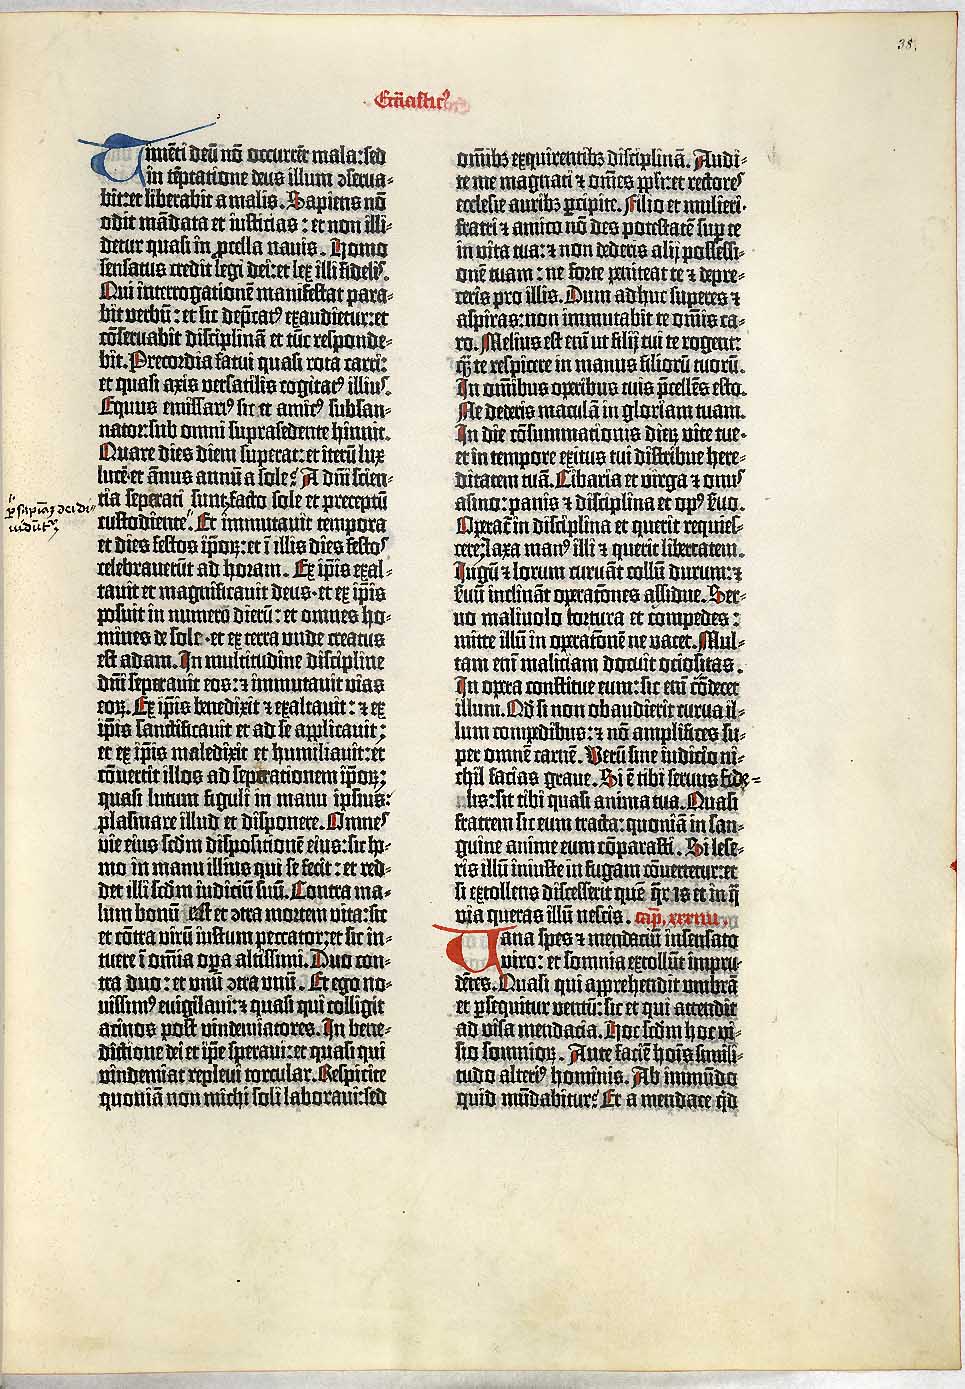 38.
Eccl̄iasticꝰ
Timēti deū nō occurrēt mala: sed
in tēptatione deus illum ɔserua-
bit: et liberabit a malis. Sapiens nō
odit mādata et iusticias: et non illi-
detur quasi in ꝓcella nauis. Homo
sensatus credit legi dei: et lex illi fidelis.
Qui interrogationē manifestat para-
bit verbū: et sic dep̄catꝰ exaudietur: et
cōseruabit disciplinā et tūc responde-
bit. Precordia fatui quasi rota carri:
et quasi axis versatilis cogitatꝰ illius.
Equus emissariꝰ sic et amicꝰ subsan-
nator: sub omni suprasedente hinnit.
Quare dies diem superat: et iterū lux
lucē· et annus annū a sole? A dn̄i scien-
tia seꝑati sunt, facto sole et preceptū
custodiente. Et immutauit tempora
et dies festos ip̄oꝝ: et ī illis dies festos
celebrauerūt ad horam. Ex ip̄is exal-
tauit et magnificauit deus· et ex ip̄is
posuit in numerō dierū: et omnes ho-
mines de solo· et ex terra vnde creatus
est adam. In multitudine discipline
dn̄i seꝑauit eos: ⁊ immutauit vias
eoꝝ. Ex ip̄is benedixit ⁊ exaltauit: ⁊ ex
ip̄is sanctificauit et ad se applicauit:
et ex ip̄is maledixit et humiliauit: et
cōuertit illos ad seꝑationem ip̄oꝝ:
quasi lutum figuli in manu ipsius:
plasmare illud et disponere. Omnes
vie eius scdm dispositionē eius: sic ho-
mo in manu illius qui se fecit: et red-
det illi scdm iudiciū suū. Contra ma-
lum bonū est et ɔtra mortem vita: sic
et cōtra virū iustum peccator: et sic in-
tuere ī omīa oꝑa altissimi. Duo con-
tra duo: et vnū ɔtra vnū. Et ego no-
uissimꝰ euigilaui: ⁊ quasi qui colligit
acinos post vindemiatores. In bene-
dictione dei et ip̄e speraui: et quasi qui
vindemiat repleui torcular. Respicite
quoniā non michi soli laboraui: sed
omībꝫ exquirentibꝫ disciplinā. Audi-
te me magnati ⁊ om̄es ppl̄i: et rectores
ecclesie auribꝫ ꝑcipite. Filio et mulieri·
fratri ⁊ amico nō des potestatē suꝑ te
in vita tua: ⁊ non dederis alij possessi-
onē tuam: ne forte peniteat te ⁊ depre-
ceris pro illis. Dum adhuc superes ⁊
aspiras: non immutabit te om̄is ca-
ro. Melius est eni̅ ut filij tui te rogent:
q̄ꝫ te respicere in manus filiorū tuorū.
In omībus oꝑibus tuis p̄cellēs esto.
Ne dederis maculā in gloriam tuam.
In die cōsummationis dieꝝ vite tue·
et in tempore exitus tui distribue here-
ditatem tuā. Cibaria et virga ⁊ onus
asino: panis ⁊ disciplina et opꝰ ẜuo.
Oꝑat̄ in disciplina et querit requies-
cere: laxa manꝰ illi ⁊ querit libertatem.
Iugū ⁊ lorum curuāt collū durum: ⁊
ẜuū inclināt oꝑatōnes assidue. Ser-
uo maliuolo tortura et compedes:
mitte illū in oꝑatōnē ne vacet. Mul-
tam eni̅ maliciam docuit ociositas.
In oꝑa constitue eum: sic eni̅ cōdecet
illum. Qd̄ si non obaudierit curua il-
lum compedibus: ⁊ nō amplifices su-
per omnē carnē. Verū sine iudicio ni-
chil facias graue. Si ē tibi seruus fide-
lis: sit tibi quasi anima tua. Quasi
fratrem sic eum tracta: quoniā in san-
guine anime eum cōparasti. Si lese-
ris illū iniuste in fugam cōuertetur: et
si extollens discesserit quē q̄r is et in q̄
via queras illū nescis. cap̄. xxxiiii.
Uana spes ⁊ mendaciū insensato
viro: et somnia extollūt impru-
dētes. Quasi qui apprehendit vmbrā
et ꝑsequitur ventū: sic et qui attendit
ad visa mendacia. Hoc scdm hoc vi-
sio somnioꝝ. Ante faciē hoīs simili-
tudo alteriꝰ hominis. Ab immūdo
quid mūdabitur? Et a mendace qd̄